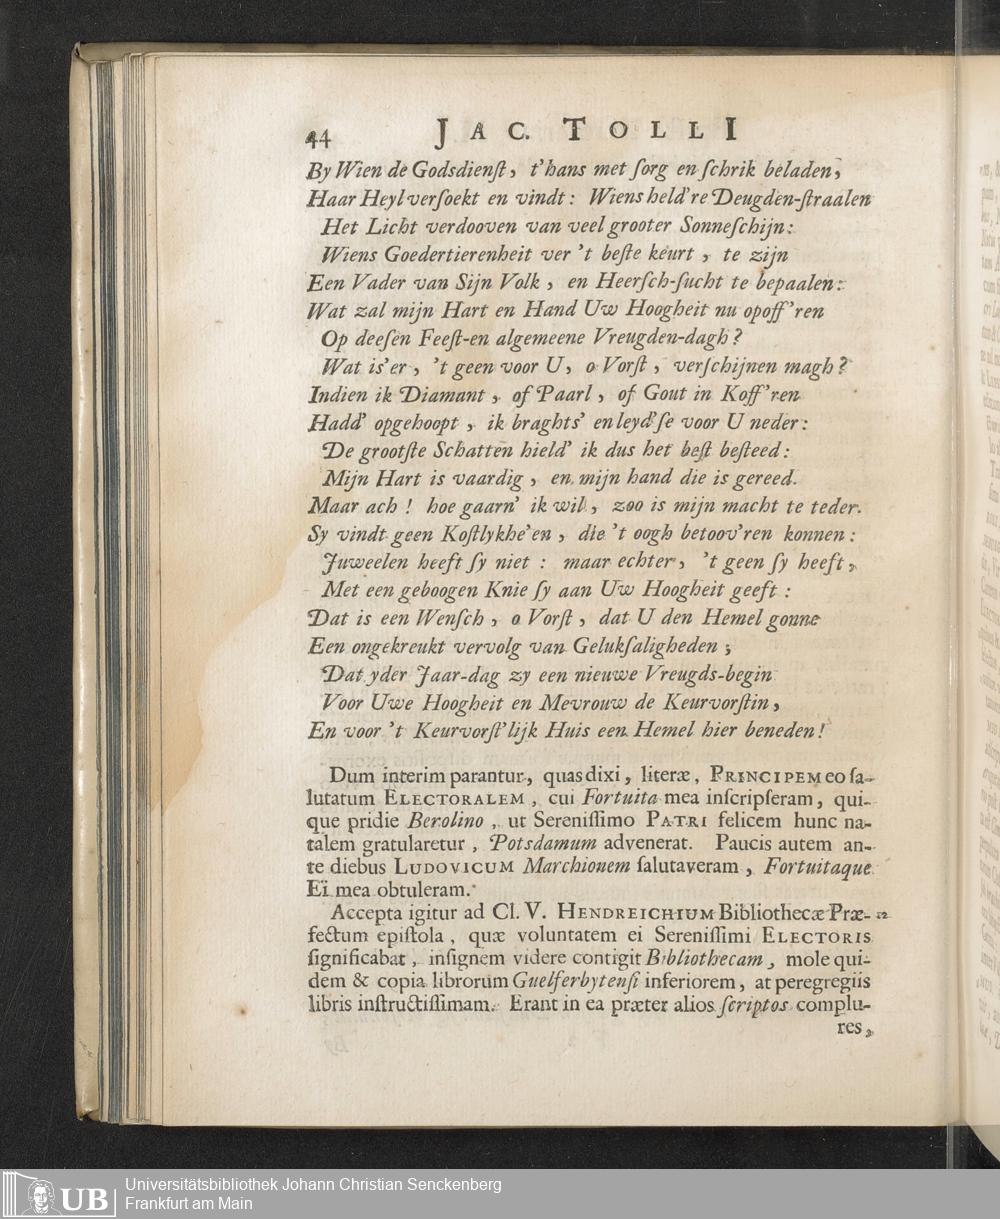 44 JAC. TOLLI
By Wien de Godsdienſt, t'hans met ſorg en ſchrik beladen,
Haar Heyl verſoekt en vindt: Wiens held're Deugden-ſtraalen
Het Licht verdooven van veel grooter Sonneſchijn:
Wiens Goedertierenheit ver 't beſte keurt, te zijn
Een Vader van Sijn Volk, en Heerſch-ſucht te bepaalen:
Wat zal mijn Hart en Hand Uw Hoogheit nu opoff'ren
Op deeſen Feeſt-en algemeene Vreugden-dagh?
Wat is'er, 't geen voor U, o Vorſt, verſchijnen magh?
Indien ik Diamant, of Paarl, of Gout in Koff'ren
Hadd' opgehoopt, ik braghts' en leyd'ſe voor U neder:
De grootſte Schatten hield' ik dus het beſt beſteed:
Mijn Hart is vaardig, en mijn hand die is gereed.
Maar ach! hoe gaarn' ik wil, zoo is mijn macht te teder.
Sy vindt geen Koſtlykhe'en, die 't oogh betoov'ren konnen:
Juweelen heeft ſy niet: maar echter, 't geen ſy heeft,
Met een geboogen Knie ſy aan Uw Hoogheit geeft:
Dat is een Wenſch, o Vorſt, dat U den Hemel gonne
Een ongekreukt vervolg van Gelukſaligheden;
Dat yder Jaar-dag zy een nieuwe Vreugds-begin
Voor Uwe Hoogheit en Mevrouw de Keurvorſtin,
En voor 't Keurvorſt'lijk Huis een Hemel hier beneden!
Dum interim parantur, quas dixi, literæ, PRINCIPEM eo ſa-
lutatum ELECTORALEM, cui Fortuita mea inſcripſeram, qui-
que pridie Berolino, ut Sereniſſimo PATRI felicem hunc na-
talem gratularetur, Potsdamum advenerat. Paucis autem an-
te diebus LUDOVICUM Marchionem ſalutaveram, Fortuitaque
Eï mea obtuleram.
Accepta igitur ad Cl. V. HENDREICHIUM Bibliothecæ Præ- 12
fectum epiſtola, quæ voluntatem ei Sereniſſimi ELECTORIS
ſignificabat, inſignem videre contigit Bibliothecam, mole qui-
dem & copia librorum Guelferbytenſi inferiorem, at peregregiis
libris inſtructiſſimam. Erant in ea præter alios ſcriptos complu-
res,
UB Universitätsbibliothek Johann Christian Senckenberg
Frankfurt am Main